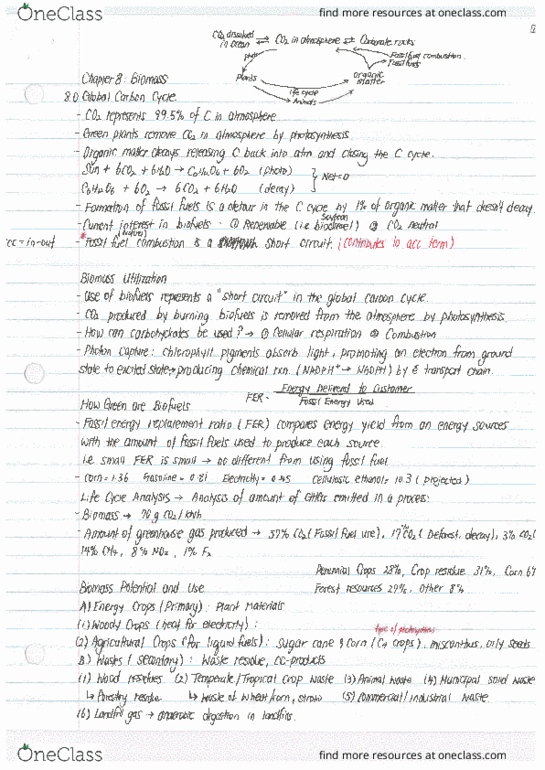 OneClass
find more resources at oneclass.com
CO₂ dissolved in ocean ⇌ CO₂ in atmosphere ⇌ Carbonate rocks
Fossil fuel combustion
Fossil fuels
photo
Plants
Organic Matter
life cycle
Animals
Chapter 8: Biomass
8.0 Global Carbon Cycle
- CO₂ represents 99.5% of C in atmosphere
- Green plants remove CO₂ in atmosphere by photosynthesis.
- Organic matter decays releasing C back into atm and closing the C cycle.
Sun + 6CO₂ + 6H₂O → C₆H₁₂O₆ + 6O₂ (photo)
C₆H₁₂O₆ + 6O₂ → 6CO₂ + 6H₂O (decay)
} Net=0
- Formation of fossil fuels is a detour in the C cycle by 1% of organic matter that doesn't decay.
- Current interest in biofuels: ① Renewable (i.e biodiesel) ② CO₂ neutral
acc = in-out
* Fossil fuel combustion is a short circuit. (contributes to acc term)
Biomass Utilization
- Use of biofuels represents a "short circuit" in the global carbon cycle.
- CO₂ produced by burning biofuels is removed from the atmosphere by photosynthesis.
- How can carbohydrates be used? → ① Cellular respiration ② Combustion
- Photon capture: chlorophyll pigments absorb light, promoting an electron from ground
state to excited state → producing chemical rxn. (NADPH⁺ → NADPH) by e⁻ transport chain.
FER = Energy Delivered to Customer
Fossil Energy Used
How Green are Biofuels
- Fossil energy replacement ratio (FER) compares energy yield from an energy sources
with the amount of fossil fuels used to produce each source.
i.e small FER is small → no different from using fossil fuel
- Corn = 1.36 Gasoline = 0.81 Electricity = 0.45 Cellulosic ethanol = 10.3 (projected)
Life Cycle Analysis → Analysis of amount of GHGs emitted in a process:
- Biomass → g CO₂/kWh
- Amount of greenhouse gas produced → 57% CO₂ (Fossil fuel use), 17% CO₂ (Deforest, decay), 3% CO₂ (
14% CH₄, 8% NO₂, 1% F₂
Perennial Crops 28%, Crop residue 31%, Corn 6%
Biomass Potential and Use
Forest resources 27%, Other 8%
A) Energy Crops (Primary): Plant Materials
(1) Woody Crops (heat for electricity):
type of photosynthesis
(2) Agricultural Crops (for liquid fuels): Sugar cane & Corn (C₄ crops), miscanthus, oily seeds
B) Wastes (Secondary): Waste residue, co-products
(1) Wood residues (2) Temperate/Tropical Crop Waste (3) Animal waste (4) Municipal solid waste
↳ Forestry residue ↳ Waste of wheat/corn, straw (5) Commercial/industrial waste
(6) Landfill gas → anaerobic digestion in landfills.
OneClass
find more resources at oneclass.com